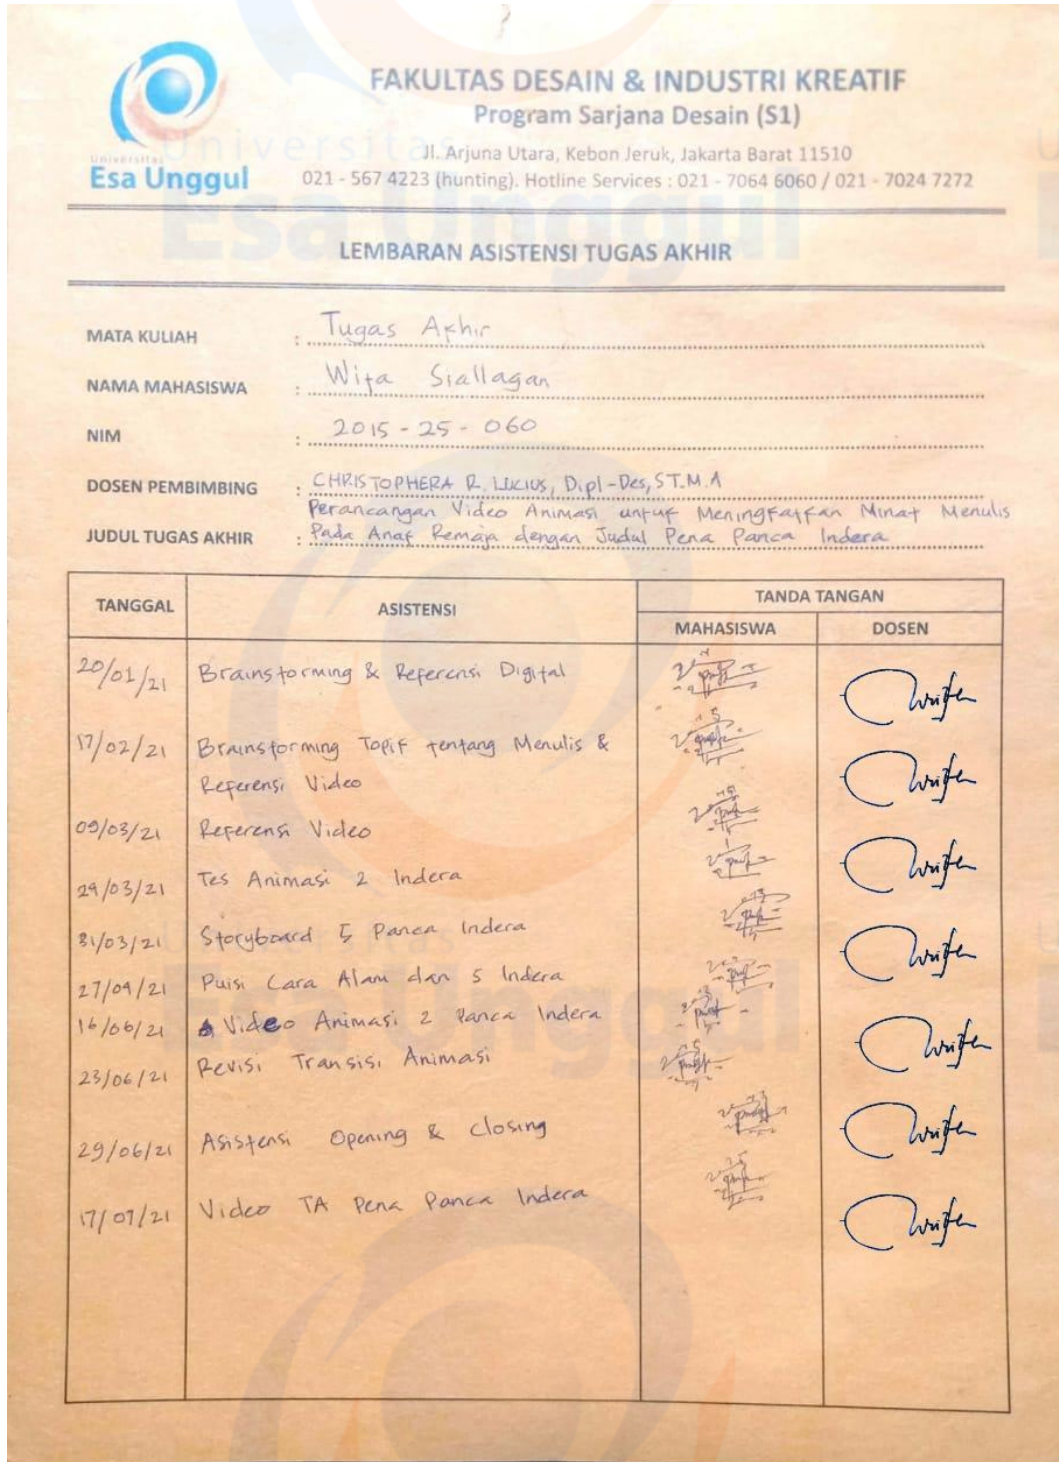 Universitas
Esa Unggul
FAKULTAS DESAIN & INDUSTRI KREATIF
Program Sarjana Desain (S1)
Jl. Arjuna Utara, Kebon Jeruk, Jakarta Barat 11510
021 - 567 4223 (hunting). Hotline Services : 021 - 7064 6060 / 021 - 7024 7272
LEMBARAN ASISTENSI TUGAS AKHIR
MATA KULIAH : Tugas Akhir
NAMA MAHASISWA : Wita Siallagan
NIM : 2015 - 25 - 060
DOSEN PEMBIMBING : CHRISTOPHERA R. LUCIUS, Dipl-Des, ST.M.A
JUDUL TUGAS AKHIR : Perancangan Video Animasi untuk Meningkatkan Minat Menulis
Pada Anak Remaja dengan Judul Pena Panca Indera
TANGGAL ASISTENSI TANDA TANGAN
MAHASISWA DOSEN
20/01/21 Brainstorming & Referensi Digital
17/02/21 Brainstorming Topik tentang Menulis &
Referensi Video
09/03/21 Referensi Video
29/03/21 Tes Animasi 2 Indera
31/03/21 Storyboard 5 Panca Indera
27/04/21 Puisi Cara Alam dan 5 Indera
16/06/21 Video Animasi 2 Panca Indera
23/06/21 Revisi Transisi Animasi
29/06/21 Asistensi Opening & Closing
17/07/21 Video TA Pena Panca Indera